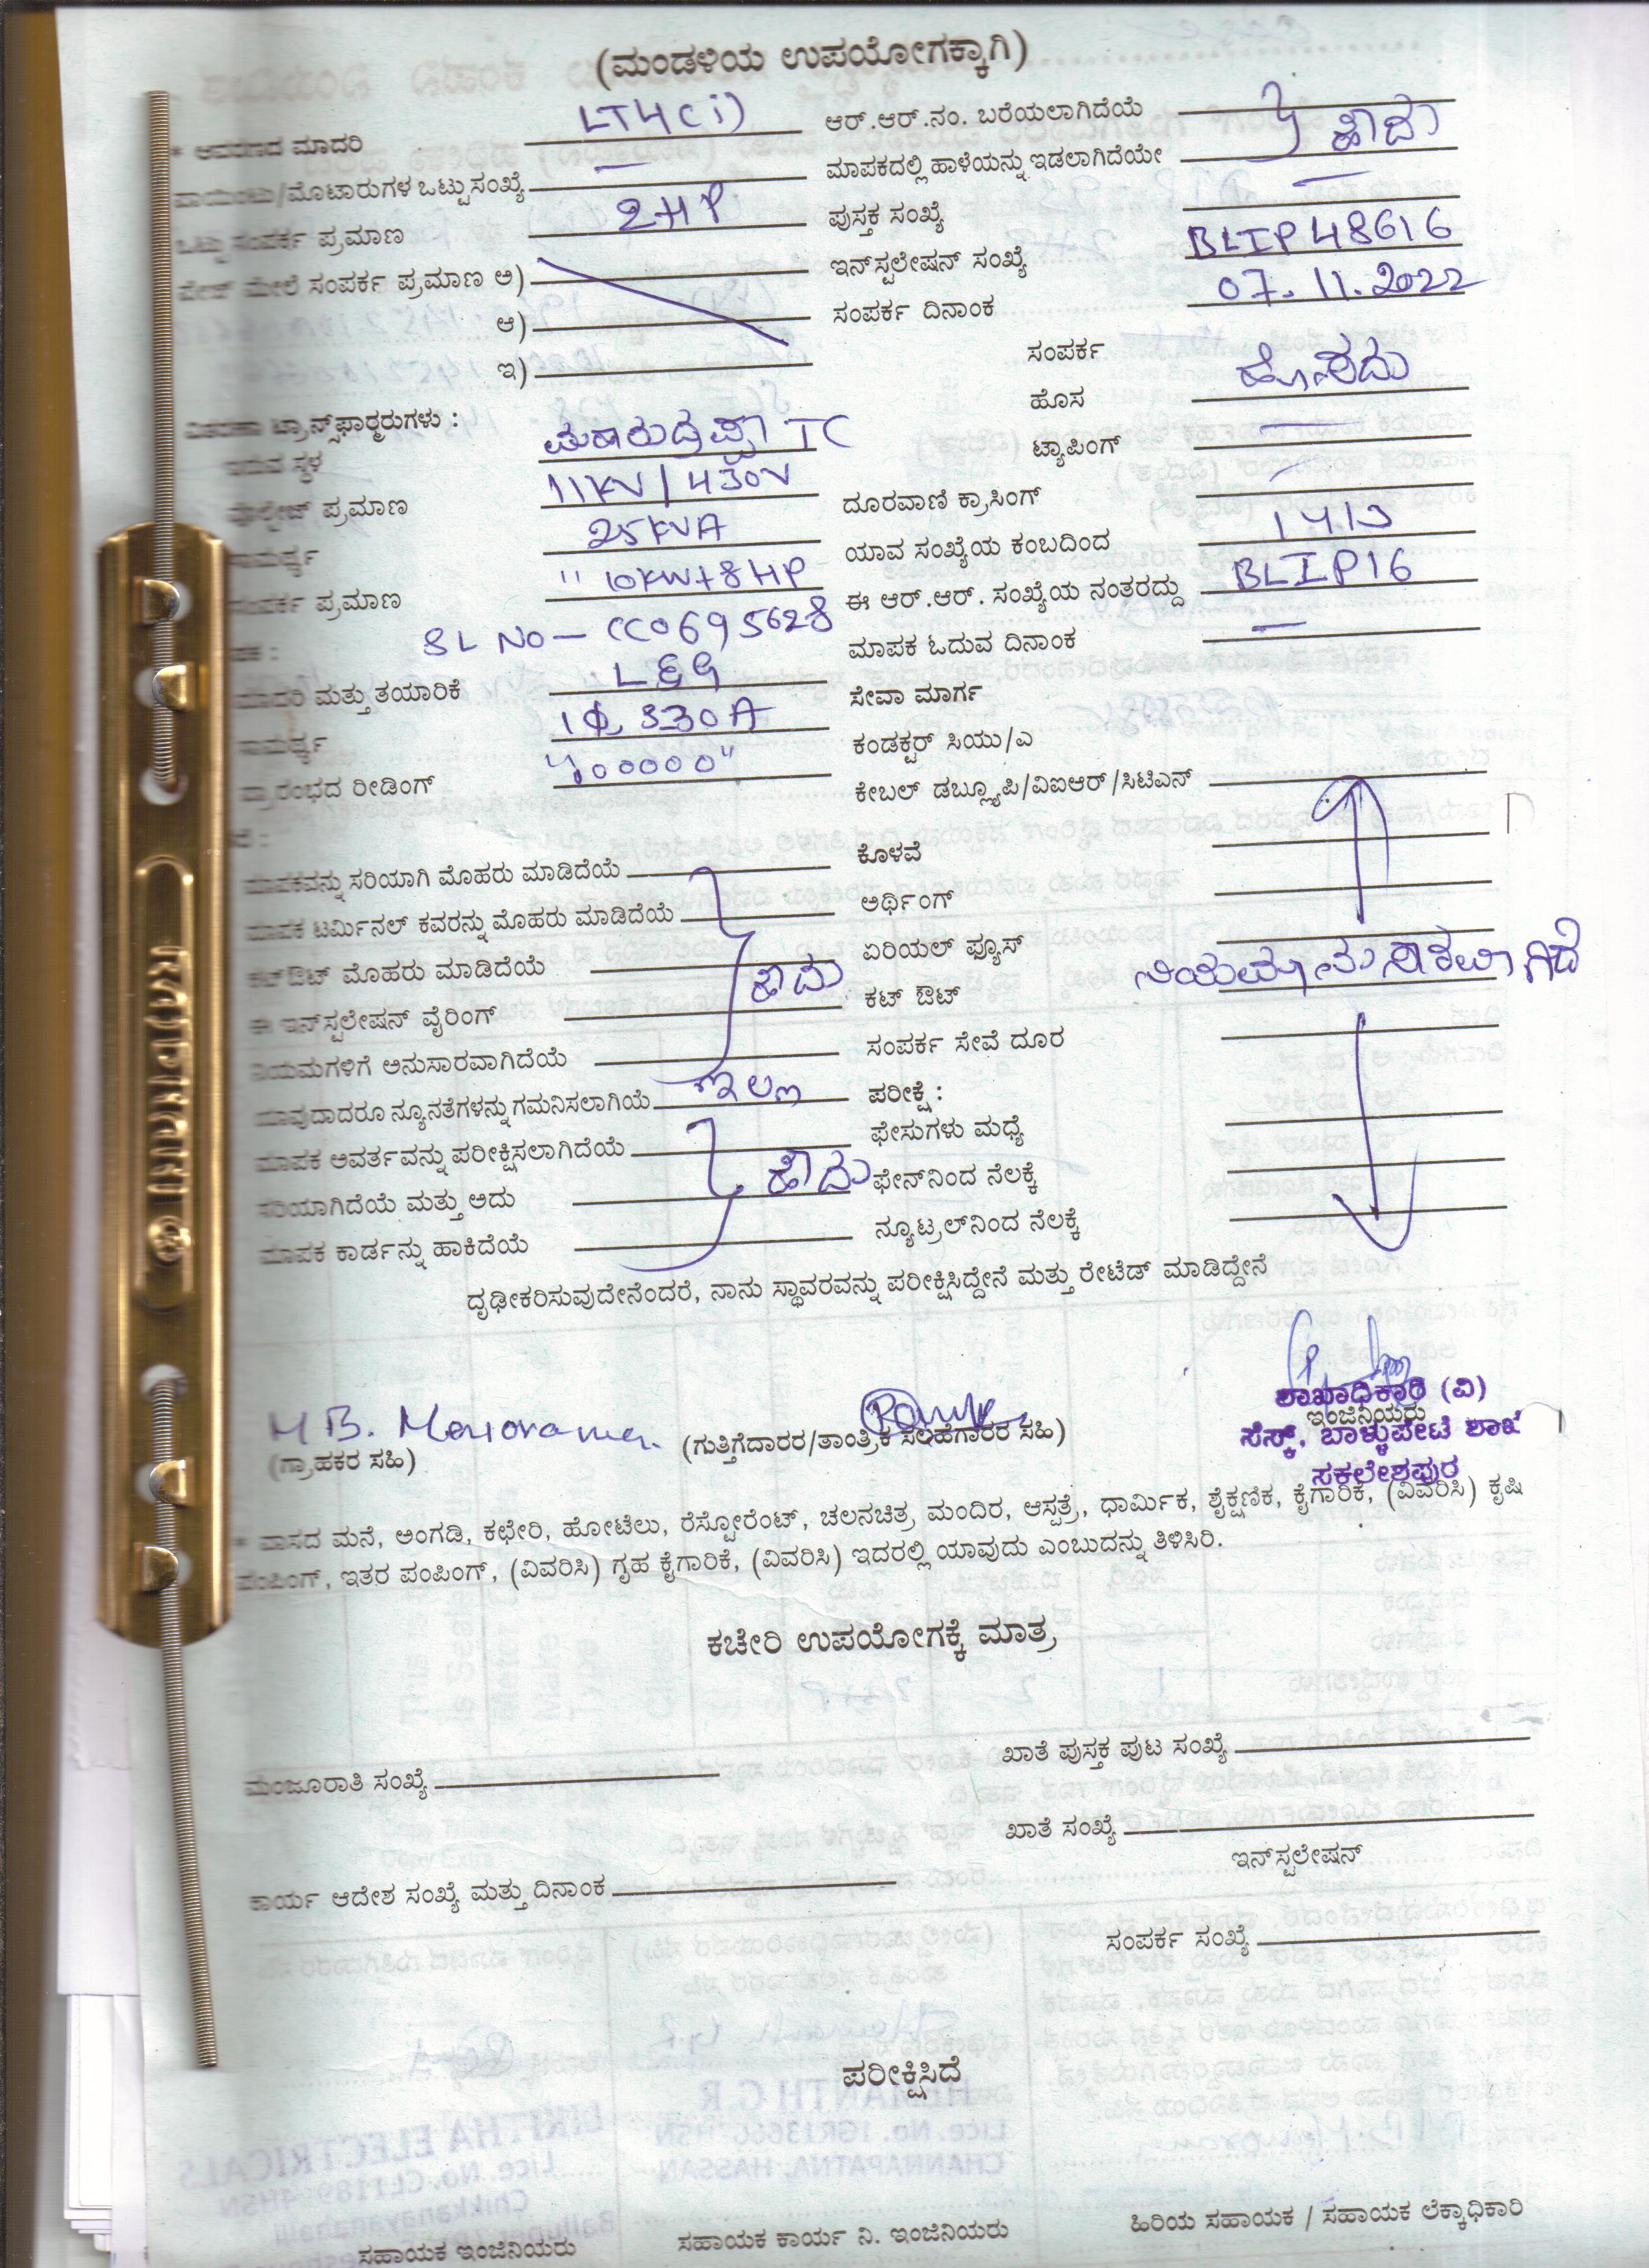 (ಮಂಡಳಿಯ ಉಪಯೋಗಕ್ಕಾಗಿ)
* ಆವರಣದ ಮಾದರಿ LT4(i)
ಪಾಯಿಂಟು/ಮೊಟಾರುಗಳ ಒಟ್ಟು ಸಂಖ್ಯೆ —
ಒಟ್ಟು ಸಂಪರ್ಕ ಪ್ರಮಾಣ 2HP
ಪೇಜ್ ಮೇಲೆ ಸಂಪರ್ಕ ಪ್ರಮಾಣ ಅ)
ಆ)
ಇ)
ವಿತರಣಾ ಟ್ರಾನ್ಸ್‌ಫಾರ್‍ಮರುಗಳು :
ಇರುವ ಸ್ಥಳ ಮಹಾರುದ್ರಪ್ಪಾ TC
ವೋಲ್ಟೇಜ್ ಪ್ರಮಾಣ 11KV/430V
ಸಾಮರ್ಥ್ಯ 25KVA
ಸಂಪರ್ಕ ಪ್ರಮಾಣ " 10KW+8HP
SL NO – CC0695628
ಮಾದರಿ ಮತ್ತು ತಯಾರಿಕೆ L&G
ಸಾಮರ್ಥ್ಯ
ಪ್ರಾರಂಭದ ರೀಡಿಂಗ್
ಮಾಪಕವನ್ನು ಸರಿಯಾಗಿ ಮೊಹರು ಮಾಡಿದೆಯೆ
ಮಾಪಕ ಟರ್ಮಿನಲ್ ಕವರನ್ನು ಮೊಹರು ಮಾಡಿದೆಯೆ
ಕಟ್‌ಔಟ್ ಮೊಹರು ಮಾಡಿದೆಯೆ ಹೌದು
ಈ ಇನ್‌ಸ್ಟಲೇಷನ್ ವೈರಿಂಗ್
ನಿಯಮಗಳಿಗೆ ಅನುಸಾರವಾಗಿದೆಯೆ
ಯಾವುದಾದರೂ ನ್ಯೂನತೆಗಳನ್ನು ಗಮನಿಸಲಾಗಿಯೆ ಇಲ್ಲ
ಮಾಪಕ ಅವರ್ತವನ್ನು ಪರೀಕ್ಷಿಸಲಾಗಿದೆಯೆ
ಸರಿಯಾಗಿದೆಯೆ ಮತ್ತು ಅದು ಹೌದು
ಮಾಪಕ ಕಾರ್ಡನ್ನು ಹಾಕಿದೆಯೆ
ಆರ್.ಆರ್.ನಂ. ಬರೆಯಲಾಗಿದೆಯೆ
ಮಾಪಕದಲ್ಲಿ ಹಾಳೆಯನ್ನು ಇಡಲಾಗಿದೆಯೇ ಹೌದು
ಪುಸ್ತಕ ಸಂಖ್ಯೆ —
ಇನ್‌ಸ್ಟಲೇಷನ್ ಸಂಖ್ಯೆ BLIP48616
ಸಂಪರ್ಕ ದಿನಾಂಕ 07.11.2022
ಸಂಪರ್ಕ
ಹೊಸ ಹೊಸದು
ಟ್ಯಾಪಿಂಗ್ —
ದೂರವಾಣಿ ಕ್ರಾಸಿಂಗ್ —
ಯಾವ ಸಂಖ್ಯೆಯ ಕಂಬದಿಂದ
ಈ ಆರ್.ಆರ್. ಸಂಖ್ಯೆಯ ನಂತರದ್ದು BLIP16
ಮಾಪಕ ಓದುವ ದಿನಾಂಕ —
ಸೇವಾ ಮಾರ್ಗ
ಕಂಡಕ್ಟರ್ ಸಿಯು/ಎ
ಕೇಬಲ್ ಡಬ್ಲ್ಯೂಪಿ/ವಿಐಆರ್/ಸಿಟಿಎನ್
ಕೊಳವೆ
ಅರ್ಥಿಂಗ್
ಏರಿಯಲ್ ಫ್ಯೂಸ್
ಕಟ್ ಔಟ್ ನಿಯಮಾನುಸಾರವಾಗಿದೆ
ಸಂಪರ್ಕ ಸೇವೆ ದೂರ
ಪರೀಕ್ಷೆ :
ಫೇಸುಗಳು ಮಧ್ಯೆ
ಫೇನ್‌ನಿಂದ ನೆಲಕ್ಕೆ
ನ್ಯೂಟ್ರಲ್‌ನಿಂದ ನೆಲಕ್ಕೆ
ದೃಢೀಕರಿಸುವುದೇನೆಂದರೆ, ನಾನು ಸ್ಥಾವರವನ್ನು ಪರೀಕ್ಷಿಸಿದ್ದೇನೆ ಮತ್ತು ರೇಟೆಡ್ ಮಾಡಿದ್ದೇನೆ
(ಗ್ರಾಹಕರ ಸಹಿ)
(ಗುತ್ತಿಗೆದಾರರ/ತಾಂತ್ರಿಕ ಸಲಹೆಗಾರರ ಸಹಿ)
ಶಾಖಾಧಿಕಾರಿ (ವಿ)
ಇಂಜಿನಿಯರು
ಸೆಸ್ಕ್, ಬಾಳ್ಳುಪೇಟೆ ಶಾಖೆ
ಸಕಲೇಶಪುರ
* ವಾಸದ ಮನೆ, ಅಂಗಡಿ, ಕಛೇರಿ, ಹೋಟೆಲು, ರೆಸ್ಟೋರೆಂಟ್, ಚಲನಚಿತ್ರ ಮಂದಿರ, ಆಸ್ಪತ್ರೆ, ಧಾರ್ಮಿಕ, ಶೈಕ್ಷಣಿಕ, ಕೈಗಾರಿಕೆ, (ವಿವರಿಸಿ) ಕೃಷಿ
ಪಂಪಿಂಗ್, ಇತರ ಪಂಪಿಂಗ್, (ವಿವರಿಸಿ) ಗೃಹ ಕೈಗಾರಿಕೆ, (ವಿವರಿಸಿ) ಇದರಲ್ಲಿ ಯಾವುದು ಎಂಬುದನ್ನು ತಿಳಿಸಿರಿ.
ಕಚೇರಿ ಉಪಯೋಗಕ್ಕೆ ಮಾತ್ರ
ಖಾತೆ ಪುಸ್ತಕ ಪುಟ ಸಂಖ್ಯೆ
ಮಂಜೂರಾತಿ ಸಂಖ್ಯೆ
ಖಾತೆ ಸಂಖ್ಯೆ
ಇನ್‌ಸ್ಟಲೇಷನ್
ಕಾರ್ಯ ಆದೇಶ ಸಂಖ್ಯೆ ಮತ್ತು ದಿನಾಂಕ
ಸಂಪರ್ಕ ಸಂಖ್ಯೆ
ಪರೀಕ್ಷಿಸಿದೆ
ಸಹಾಯಕ ಇಂಜಿನಿಯರು
ಸಹಾಯಕ ಕಾರ್ಯ ನಿ. ಇಂಜಿನಿಯರು
ಹಿರಿಯ ಸಹಾಯಕ / ಸಹಾಯಕ ಲೆಕ್ಕಾಧಿಕಾರಿ